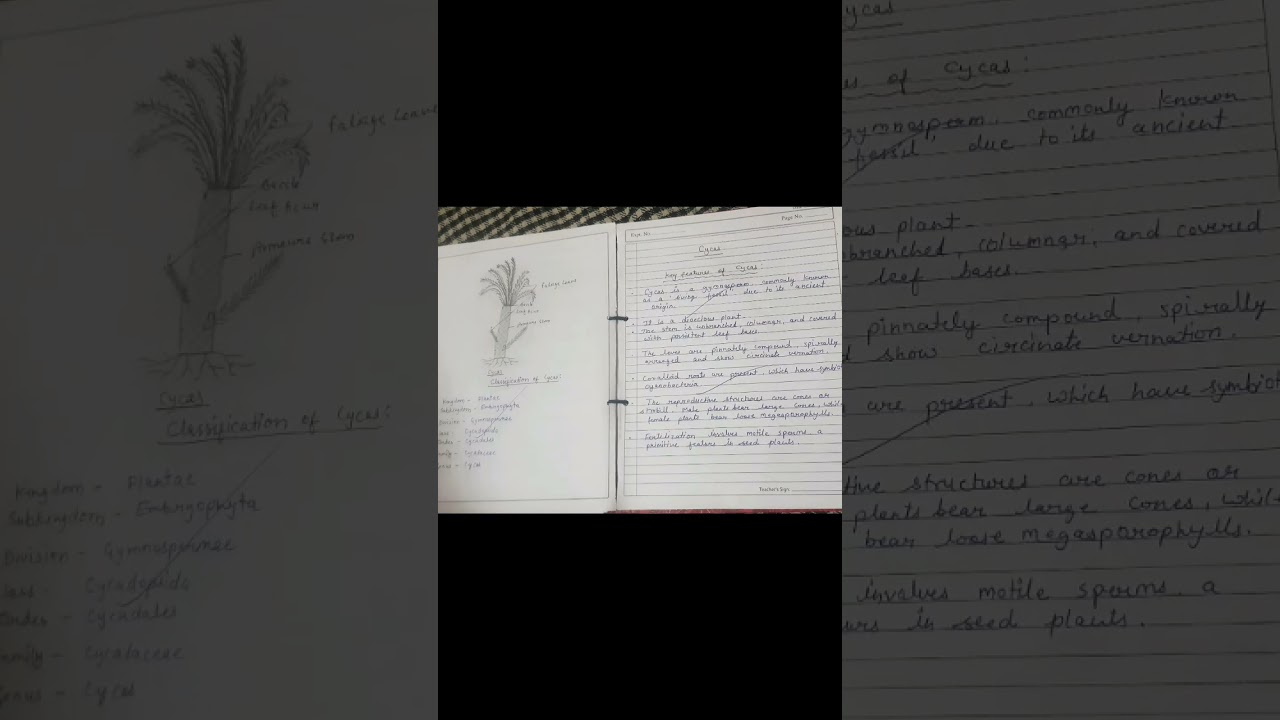 Falage leaves
Bark
Leaf Acur
Armoure Stem
Cycas
Classification of Cycas:
Kingdom - Plantae
Subkingdom - Embryophyta
Division - Gymnospermae
Class - Cycadopsida
Order - Cycadales
Family - Cycadaceae
Genus - Cycas
Page No.
Page No.
Cycas
Key features of Cycas:
Cycas is a gymnosperm, commonly known
as a living fossil, due to its ancient
origin.
It is a dioecious plant.
The stem is unbranched, columnar, and covered
with persistent leaf bases.
The leves are pinnately compound, spirally
arranged and show circinate vernation.
Coralloid roots are present, which have symbiot
cyanobacteria
The reproductive structures are cones or
strobili. Male plants bear large cones, whil
female plants bear loose megasporophylls.
Fertilization involves motile sperms a
primitive featurs in seed plants.
Teacher's Sign.